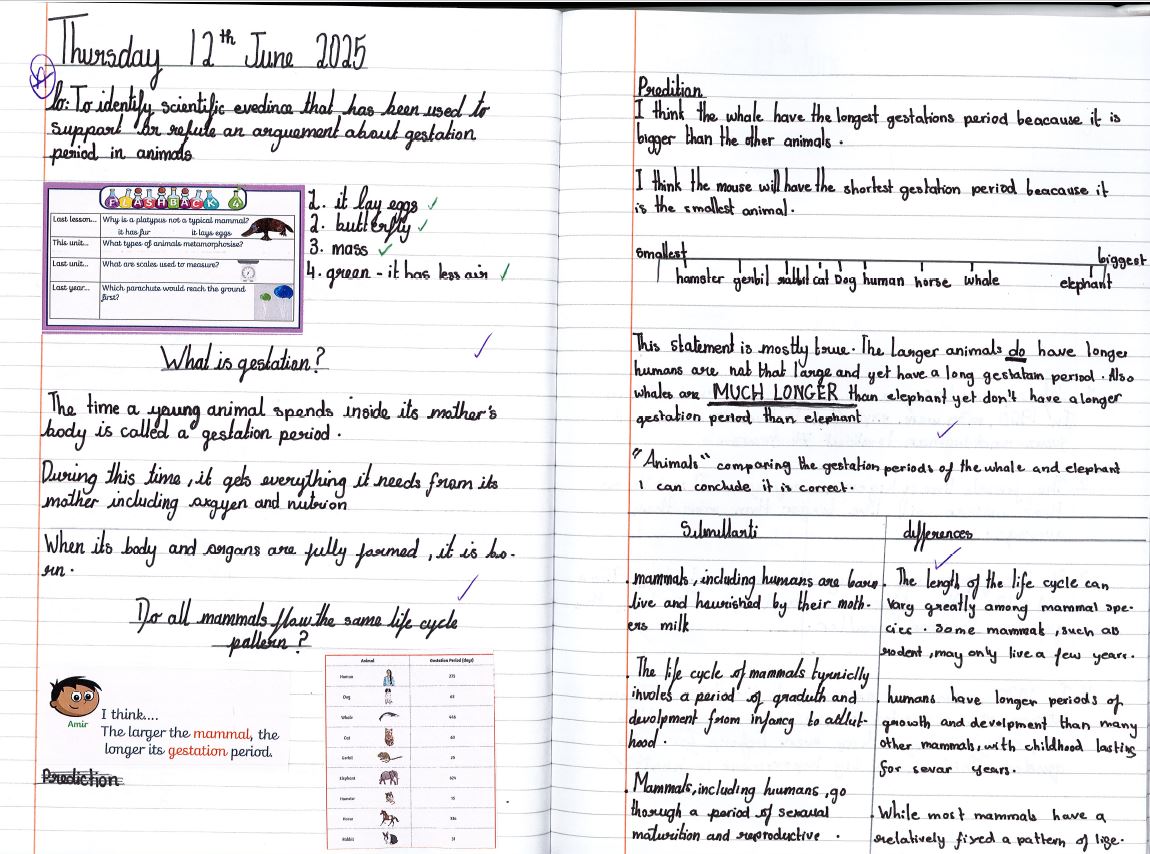 Thursday 12th June 2025
Lo: To identify scientific evedince that has been used to
support or refute an arguement about gestation
period in animals
FLASHBACK 4
Last lesson... Why is a platypus not a typical mammal?
it has fur it lays eggs
This unit... What types of animals metamorphosise?
Last unit... What are scales used to measure?
Last year... Which parachute would reach the ground
first?
1. it lay eggs
2. butterfly
3. mass
4. green - it has less air
What is gestation?
The time a young animal spends inside its mother's
body is called a gestation period.
During this time, it gets everything it needs from its
mother including oxgyen and nutrion
When its body and organs are fully formed, it is bo-
rn.
Do all mammals flow the same life cycle
pattern?
Amir
I think....
The larger the mammal, the
longer its gestation period.
Prediction
Animal Gestation Period (days)
Human 275
Dog 63
Whale
Cat 60
Gerbil 25
Elephant 624
Hamster
Horse 336
Rabbit 31
Predition
I think the whale have the longest gestations period beacause it is
bigger than the other animals.
I think the mouse will have the shortest gestation period beacause it
is the smallest animal.
smallest biggest
hamster gerbil rabbit cat Dog human horse whale elephant
This statement is mostly true. The larger animals do have longer
humans are not that large and yet have a long gestatain period. Also
whales are MUCH LONGER than elephant yet don't have a longer
gestation period than elephant
"Animals" comparing the gestation periods of the whale and elephant
I can conclude it is correct.
Silmillarti differences
mammals, including humans are born
live and nourished by their moth-
ers milk
The life cycle of mammals tyrniclly
involes a period of graduth and
devolpment from infancy to adlut-
hood.
Mammals, including humans, go
thorugh a period of sexual
maturition and reproductive.
The length of the life cycle can
vary greatly among mammal spe-
cies. Some mammals, such as
rodent, may only live a few years.
humans have longer periods of
growth and devolpment than many
other mammals, with childhood lasting
for sevar years.
While most mammals have a
relatively fixed a pattern of lige.